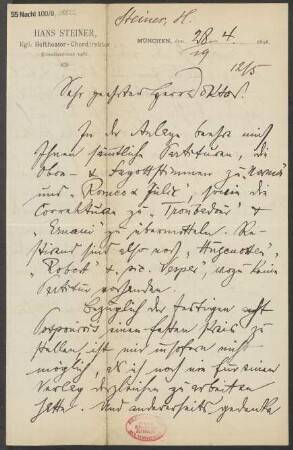 55 Nachl 100/B
Steiner, H.
HANS STEINER,
Kgl. Hoftheater-Chordirektor
MÜNCHEN, den 28. 4. 189
29
12/5
Sehr geehrter Herr Doktor!
In der Anlage beehre mich
Ihnen sämtliche Partituren, die
Oboe- & Fagottstimmen zu "Norma"
und "Romeo & Julie", sowie die
Correkturen zu "Troubadour" &
"Ernani" zu übermitteln. Rü-
ckständ sind also noch "Hugenotten",
"Robert" & "siz. Vesper", wozu keine
Partitur vorhanden.
Bezüglich der fertigen
Potpourris einen festen Preis zu
stellen, ist mir insofern nicht
möglich, als ich noch nie für einen
Verlag dergleichen zu arbeiten
hatte. Und andererseits gedenke